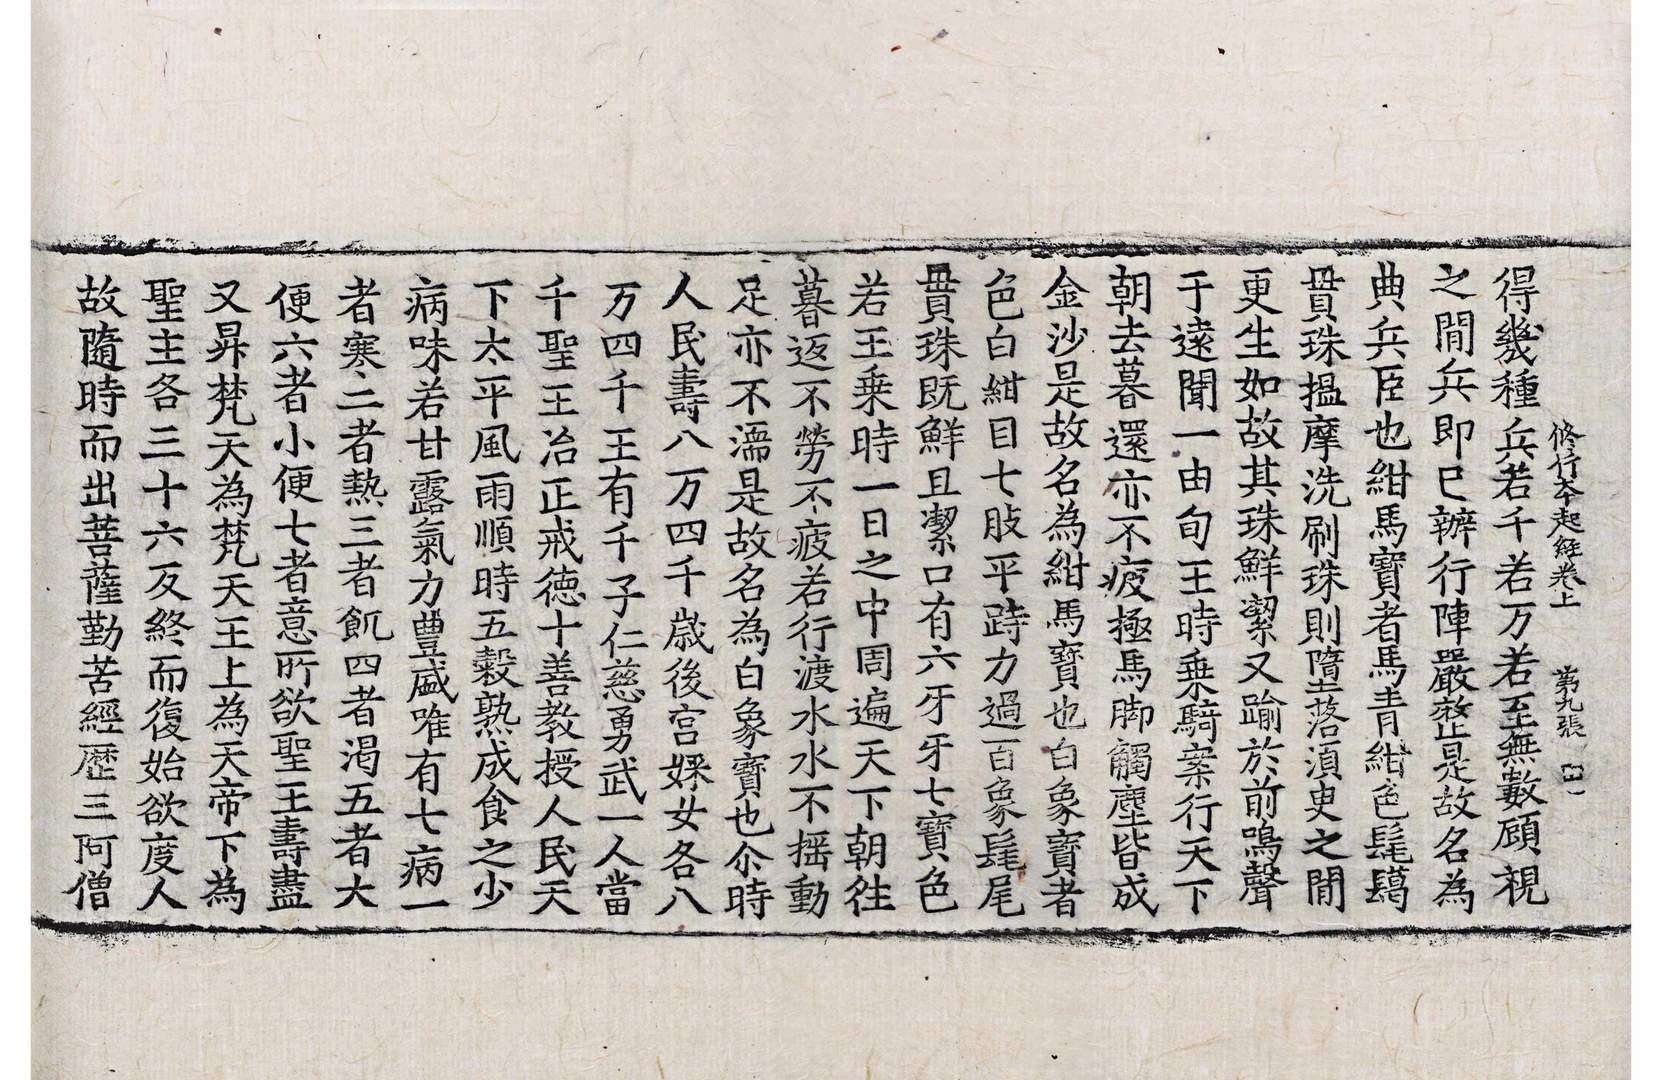 修行本起経卷上　第九張
得幾種兵若千若万若至無數顧視
之間兵即已辦行陣嚴整是故名為
典兵臣也紺馬寶者馬青紺色髦鬣
貫珠搵摩洗刷珠則墮落須臾之間
更生如故其珠鮮潔又踰於前鳴聲
于遠聞一由旬王時乗騎案行天下
朝去暮還亦不疲極馬脚觸塵皆成
金沙是故名為紺馬寶也白象寶者
色白紺目七肢平跱力過百象髦尾
貫珠既鮮且潔口有六牙牙七寶色
若王乗時一日之中周遍天下朝往
暮返不勞不疲若行渡水水不搖動
足亦不濡是故名為白象寶也尒時
人民壽八万四千歲後宮婇女各八
万四千王有千子仁慈勇武一人當
千聖王治正戒德十善教授人民天
下太平風雨順時五穀熟成食之少
病味若甘露氣力豐盛唯有七病一
者寒二者熱三者飢四者渴五者大
便六者小便七者意所欲聖王壽盡
又昇梵天為梵天王上為天帝下為
聖主各三十六反終而復始欲度人
故隨時而出菩薩勤苦經歷三阿僧